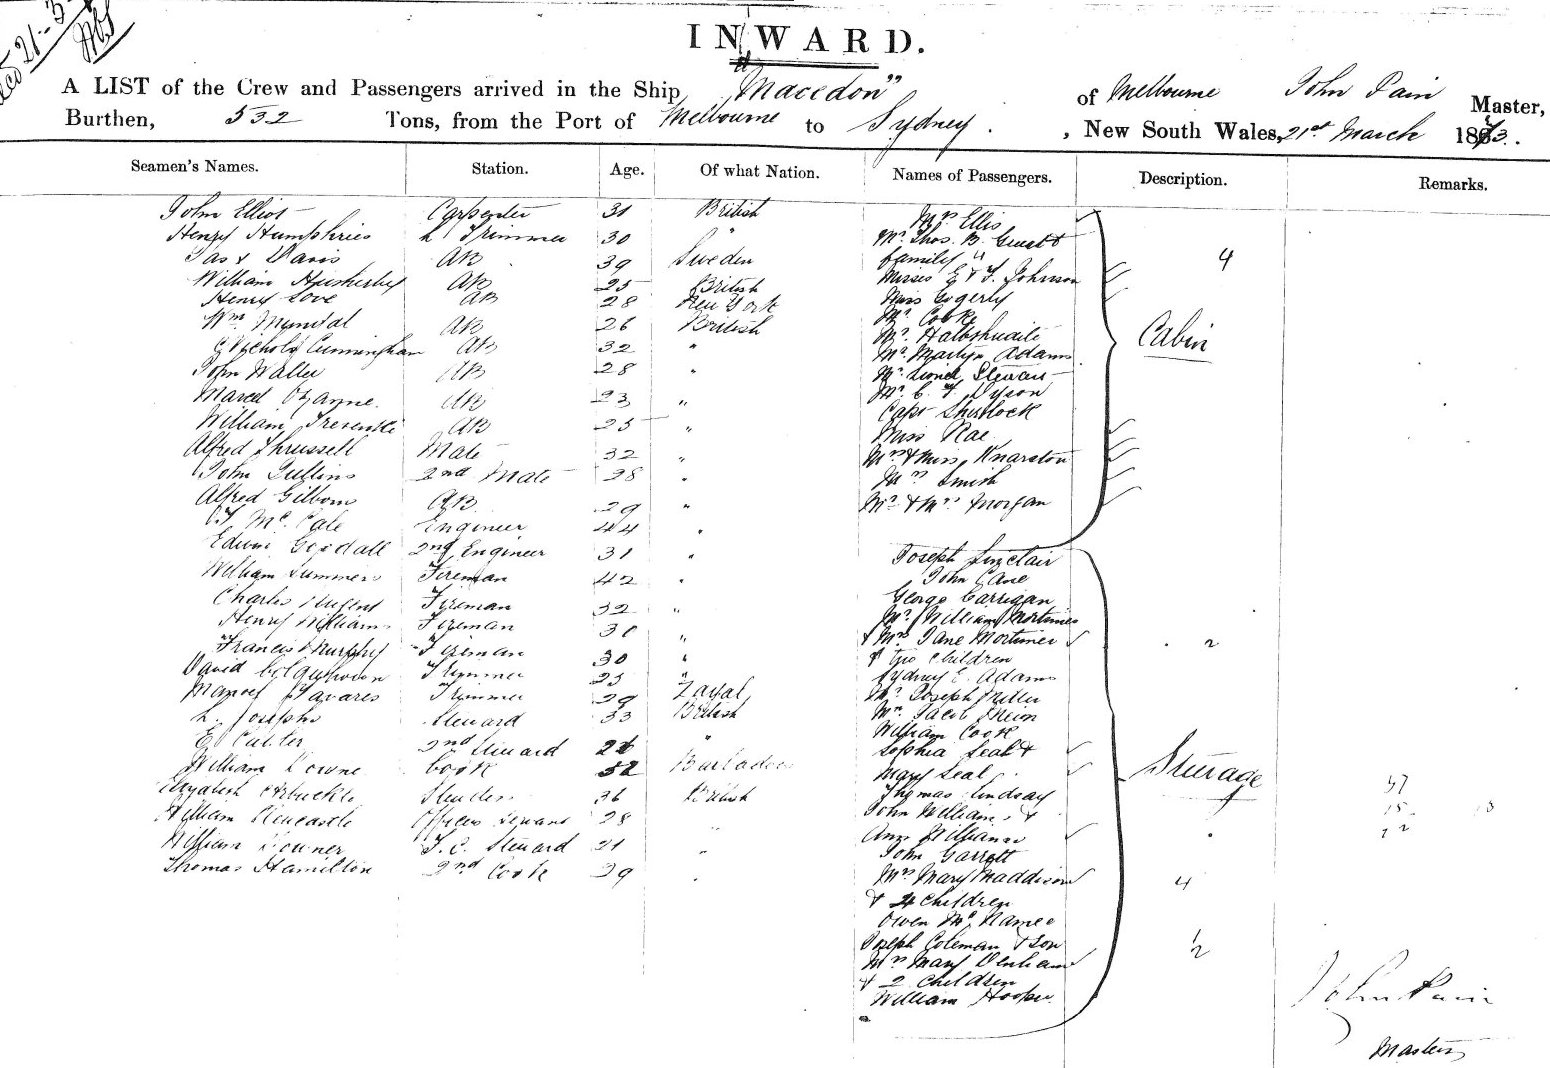 21-3
INWARD.
A LIST of the Crew and Passengers arrived in the Ship "Macedon" of Melbourne John Pain Master,
Burthen, 532 Tons, from the Port of Melbourne to Sydney. , New South Wales, 21st March 1873.
Seamen's Names. Station. Age. Of what Nation. Names of Passengers. Description. Remarks.
John Elliot Carpenter 31 British Mrs Ellis
Henry Humphries Trimmer 30 " Mr Thos. B. Guest &
Davis AB 39 Sweden family 4
William AB 25 British Misses E & F. Johnson
Henry Love AB 28 New York Miss Gogerly
Wm AB 26 British Mr Cooke
Cunningham AB 32 " Mr
John Waller AB 28 " Mr Martyn Adams
Marcel AB 23 " Mr Lionel Stewart
William AB 25 " Mr C. F. Dyson
Capt Sherlock
Cabin
Alfred Thrussell Mate 32 " Miss Rae
John Gullins 2nd Mate 38 " Mrs & Miss Knarston
Alfred Gilborn AB 29 " Mrs Smith
Mc Cale Engineer 44 " Mr & Mrs Morgan
Edwin Goodall 2nd Engineer 31 " Joseph Sinclair
William Summers Fireman 42 " John Cane
Charles Nugent Fireman 32 " George Carrigan
Henry Williams Fireman 30 Mr William Mortimer
Francis Murphy Fireman 30 " & Mrs Jane Mortimer 2
David Colquhoun Trimmer 25 " & two children
Manoel Tavares Trimmer 29 Fayal Sydney E. Adams
L. Josephs Steward 33 British Mr Joseph Miller
E. Carter 2nd Steward 26 " Mr Jacob
William Cook
William Cook 52 Barbadoes Sophia Seal &
Elizabeth Arbuckle 36 British Mary Seal
Steerage
William Newcastle Officers Servant 28 " Thomas Lindsay
William Downer F. C. Steward 21 " John Williams &
Thomas Hamilton 2nd Cook 29 " Ann Williams
John Garrett
Mrs Mary Maddison 4
& 4 children
Owen McNamee
Joseph Coleman & Son
Mrs Mary Denham 1/2
& 2 children
William Hooper
John Pain
Master